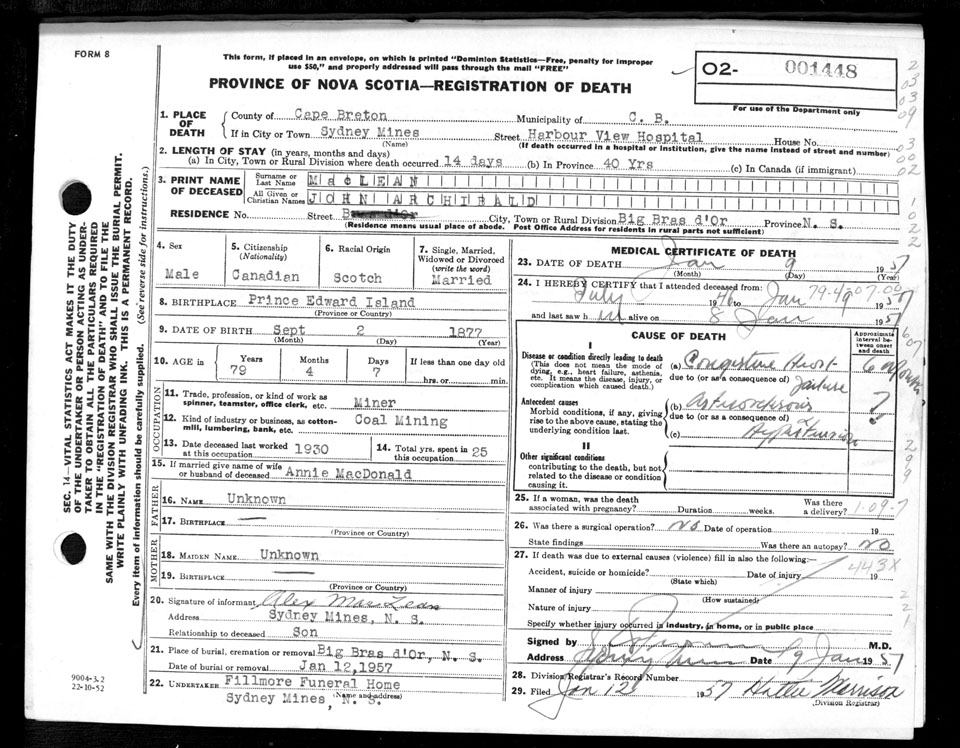 FORM 8
This form, if placed in an envelope, on which is printed "Dominion Statistics—Free, penalty for improper
use $50," and properly addressed will pass through the mail "FREE"
PROVINCE OF NOVA SCOTIA—REGISTRATION OF DEATH
02- 001448
For use of the Department only
SEC. 14—VITAL STATISTICS ACT MAKES IT THE DUTY
OF THE UNDERTAKER OR PERSON ACTING AS UNDER-
TAKER TO OBTAIN ALL THE PARTICULARS REQUIRED
IN THE "REGISTRATION OF DEATH" AND TO FILE THE
SAME WITH THE DIVISION REGISTRAR WHO SHALL ISSUE THE BURIAL PERMIT.
WRITE PLAINLY WITH UNFADING INK. THIS IS A PERMANENT RECORD.
Every item of information should be carefully supplied. (See reverse side for instructions.)
1. PLACE OF DEATH
County of Cape Breton Municipality of C. B.
If in City or Town Sydney Mines Street Harbour View Hospital House No.
(Name) (If death occurred in a hospital or institution, give the name instead of street and number)
2. LENGTH OF STAY (in years, months and days)
(a) In City, Town or Rural Division where death occurred 14 days (b) In Province 40 Yrs (c) In Canada (if immigrant)
3. PRINT NAME OF DECEASED
Surname or Last Name MacLEAN
All Given or Christian Names JOHN ARCHIBALD
RESIDENCE No. Street Bras d'Or City, Town or Rural Division Big Bras d'Or Province N. S.
(Residence means usual place of abode. Post Office Address for residents in rural parts not sufficient)
4. Sex Male
5. Citizenship (Nationality) Canadian
6. Racial Origin Scotch
7. Single, Married, Widowed or Divorced (write the word) Married
8. BIRTHPLACE Prince Edward Island
(Province or Country)
9. DATE OF BIRTH Sept 2 1877
(Month) (Day) (Year)
10. AGE IN Years 79 Months 4 Days 7 If less than one day old hrs. or min.
OCCUPATION
11. Trade, profession, or kind of work as spinner, teamster, office clerk, etc. Miner
12. Kind of industry or business, as cotton-mill, lumbering, bank, etc. Coal Mining
13. Date deceased last worked at this occupation 1930
14. Total yrs. spent in this occupation 25
15. If married give name of wife or husband of deceased Annie MacDonald
FATHER
16. NAME Unknown
17. BIRTHPLACE —
(Province or Country)
MOTHER
18. MAIDEN NAME Unknown
19. BIRTHPLACE —
(Province or Country)
20. Signature of informant Alex MacLean
Address Sydney Mines, N. S.
Relationship to deceased Son
21. Place of burial, cremation or removal Big Bras d'Or, N. S.
Date of burial or removal Jan 12, 1957
22. UNDERTAKER Fillmore Funeral Home
(Name and address)
Sydney Mines, N. S.
9004-3.2
22-10-52
MEDICAL CERTIFICATE OF DEATH
23. DATE OF DEATH Jan 9 1957
(Month) (Day) (Year)
24. I HEREBY CERTIFY that I attended deceased from:
July 1946 to Jan 9 1957
and last saw h im alive on 8 Jan 1957
CAUSE OF DEATH
Approximate interval between onset and death
I
Disease or condition directly leading to death
(This does not mean the mode of dying, e.g., heart failure, asthenia, etc. It means the disease, injury, or complication which caused death.)
(a) Congestive Heart
due to (or as a consequence of) failure
Antecedent causes
Morbid conditions, if any, giving rise to the above cause, stating the underlying condition last.
(b)
due to (or as a consequence of)
(c) Hypertension
?
II
Other significant conditions
contributing to the death, but not related to the disease or condition causing it.
25. If a woman, was the death associated with pregnancy? Duration weeks. Was there a delivery?
26. Was there a surgical operation? No Date of operation 19
State findings Was there an autopsy? No
27. If death was due to external causes (violence) fill in also the following:
443X
Accident, suicide or homicide? Date of injury 19
(State which)
Manner of injury
(How sustained)
Nature of injury
Specify whether injury occurred in industry, in home, or in public place
Signed by M.D.
Address Sydney Mines Date 9 Jan 1957
28. Division Registrar's Record Number
29. Filed Jan 12 1957 Hattie Morrison
(Division Registrar)